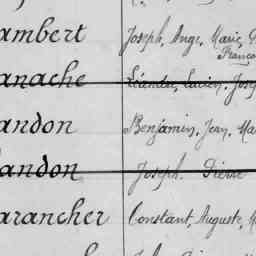 ambert Joseph, Ange, Marie,
anache Léandre, Lucien, Jose
andon Benjamin, Jean, Ma
andon Joseph Pierre
arancher Constant, Auguste,